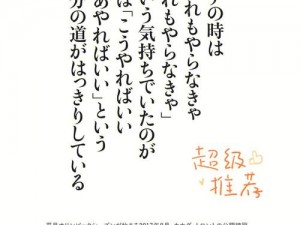 の時は
れもやらなきゃ
れもやらなきゃ」
いう気持ちでいたのが
は「こうやればいい
あやればいい」という
分の道がはっきりしている
超級
推荐